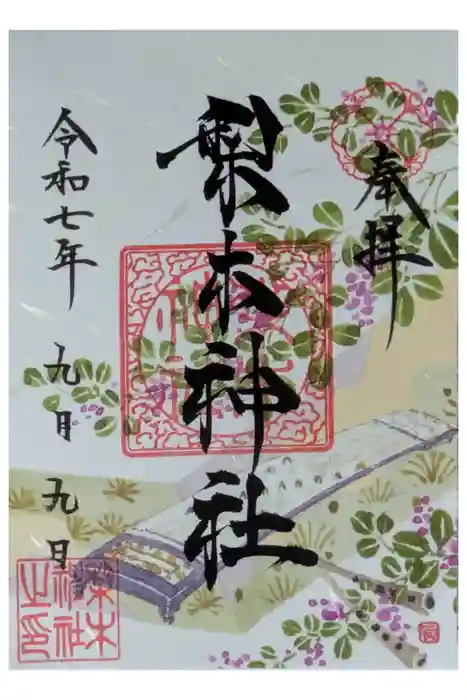 奉拝
梨木神社
令和七年 九月 九日
梨木
神社
之印